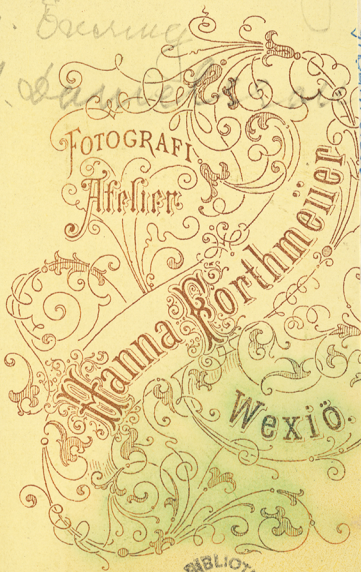 FOTOGRAFI
Atelier
Nanna Forthmeiier
Wexiö.
BIBLIOT